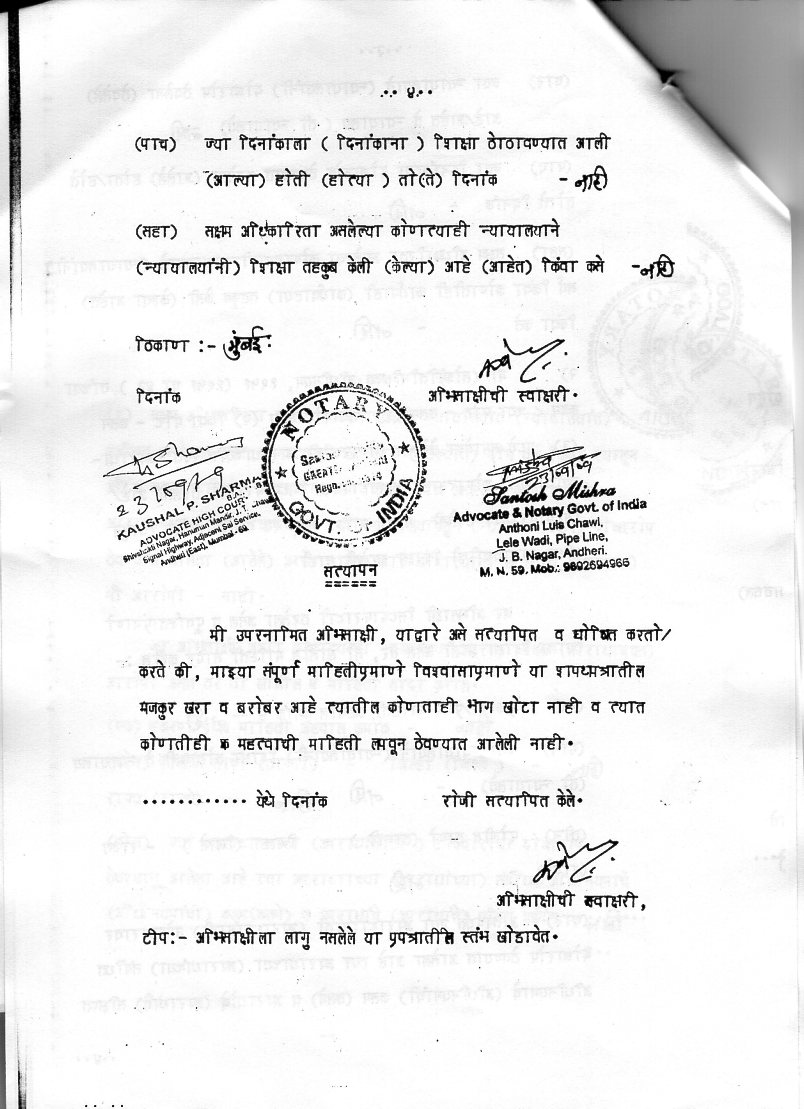 .. ४..
(पाच) ज्या दिनांकाला ( दिनांकाना ) शिक्षा ठोठावण्यात आली
(आल्या) होती (होत्या ) तो(ते) दिनांक - नाही
(सहा) सक्षम अधिकारिता असलेल्या कोणत्याही न्यायालयाने
(न्यायालयांनी) शिक्षा तहकुब केली (केल्या) आहे (आहेत) किंवा कसे - नाही
ठिकाण :- मुंबई.
दिनांक
अभिसाक्षीची स्वाक्षरी.
NOTARY
GREATER
Regn.
GOVT. OF INDIA
23/09/09
KAUSHAL P. SHARMA
B.A.
ADVOCATE HIGH COURT
Shivshakti Nagar, Hanuman Mandir, J. T. Chawl
Signal Highway, Adjacent Sai Service,
Andheri (East), Mumbai - 69
23/09/09
Santosh Mishra
Advocate & Notary Govt. of India
Anthoni Luis Chawi,
Lele Wadi, Pipe Line,
J. B. Nagar, Andheri.
M. N. 59. Mob.: 9892694966
सत्यापन
======
मी उपरनामित अभिसाक्षी, याद्वारे असे सत्यापित व घोषित करतो/
करते की, माझ्या संपूर्ण माहितीप्रमाणे विश्वासाप्रमाणे या शपथपत्रातील
मजकुर खरा व बरोबर आहे त्यातील कोणताही भाग खोटा नाही व त्यात
कोणतीही महत्वाची माहिती लपवून ठेवण्यात आलेली नाही.
............ येथे दिनांक रोजी सत्यापित केले.
अभिसाक्षीची स्वाक्षरी,
टीप:- अभिसाक्षीला लागु नसलेले या प्रपत्रातील स्तंभ खोडावेत.